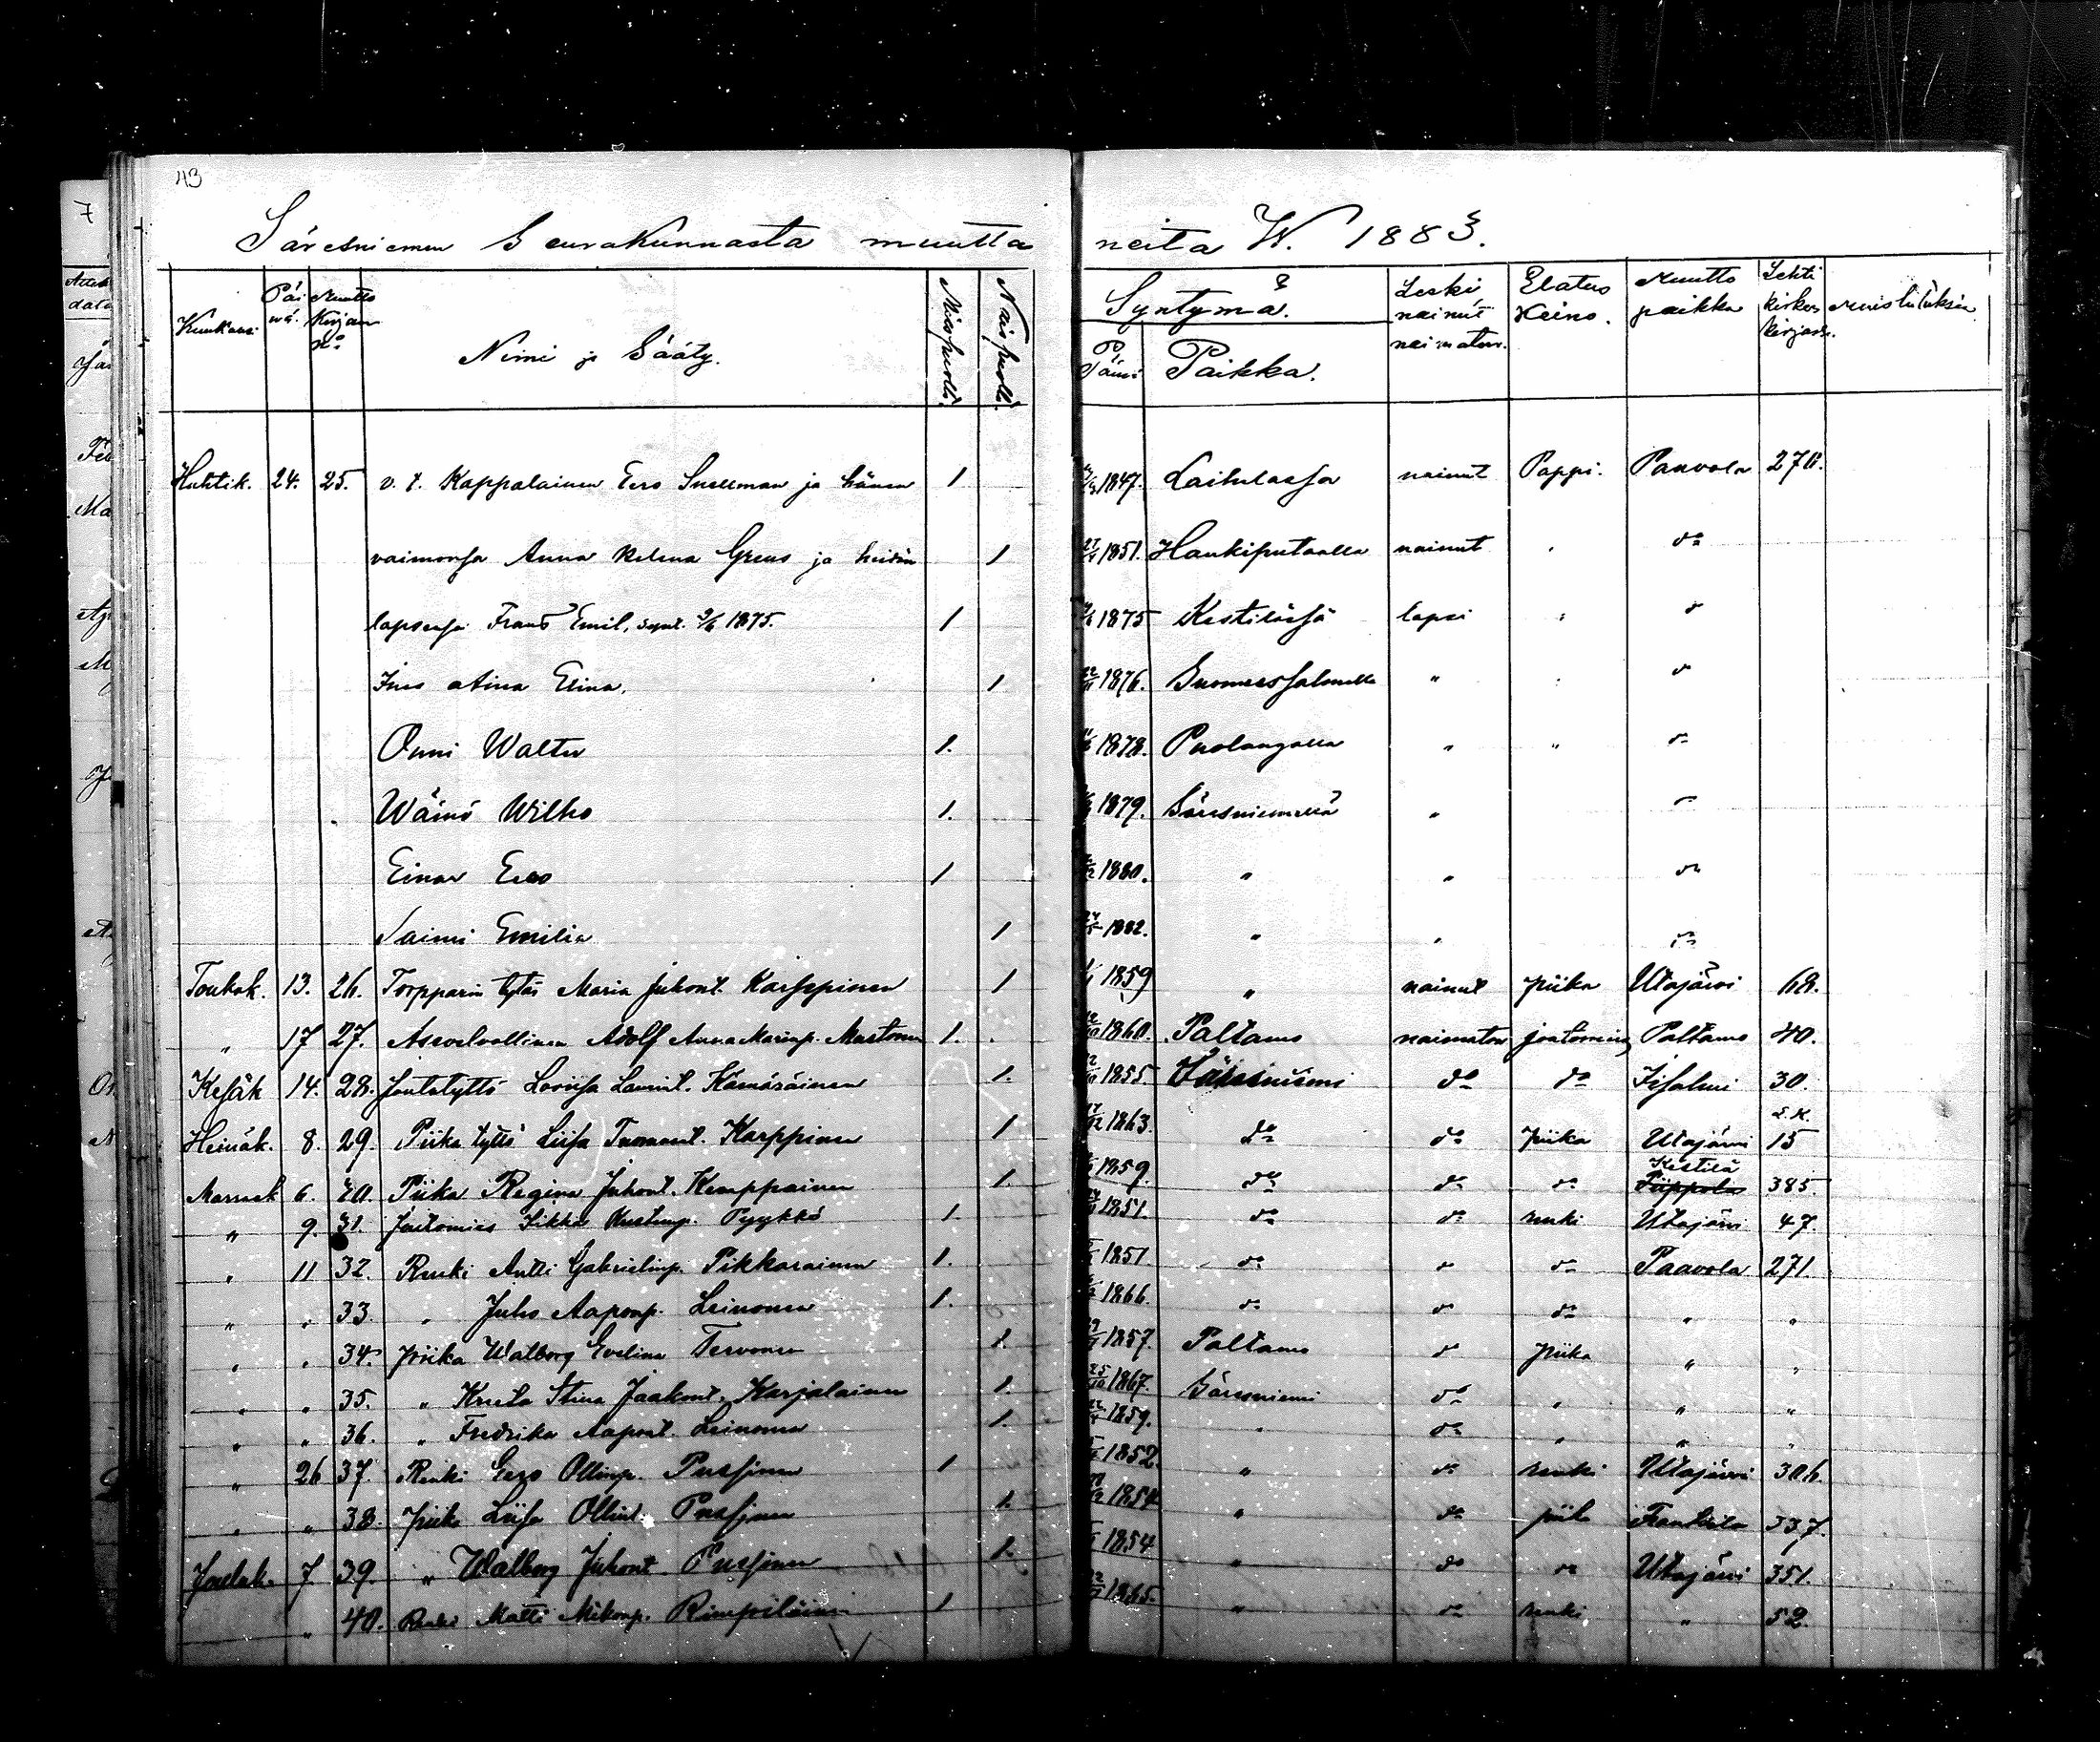 43
Säresniemen Seurakunnasta muutta neita W. 1883.
Kuukausi Päivä. Muutto Kirjan No Nimi ja Sääty. Miespuolia. Naispuolia. Syntymä. Päivä Paikka. Leski nainut naimaton. Elatus Keino. Muutto paikka Lehti kirkon kirjass. Muistutuksia
Huhtik. 24. 25. v. t. Kappalainen Eero Snellman ja hänen 1 1847. Laihelassa nainut Pappi. Paavola 270.
vaimonsa Anna Helena Greus ja heidän 1 1851. Haukiputaalla nainut do
lapsensa Frans Emil, synt. 9/6 1875. 1 1875 Kestilässä lapsi
Aina Elina. 1 1876. Suomussalmella "
Onni Walter 1. 1878. Puolangalla " "
Wäinö Wilho 1. 1879. Säresniemellä "
Einar Eero 1 1880. " "
Saimi Emilia 1 1882. " "
Toukok. 13. 26. Torpparin tytär Maria Juhont. Karppinen 1 1859 " nainut piika Utajärvi 68.
" 17 27. Asevelvollinen Adolf Anna Marianp. Mustonen 1. 1860. Paltamo naimaton joutomies Paltamo 40.
Kesäk 14. 28. Joutotyttö Loviisa Laurint. Kämäräinen 1. 1855. Säresniemi do do Iisalmi 30.
Heinäk. 8. 29. Piika tyttö Liisa Tuomant. Karppinen 1 1863. do do piika Utajärvi 15
Marrask 6. 30. Piika Regina Juhont. Kemppainen 1. 1859. do do do Piippola Kestilä 385.
" 9. 31. Joutomies Kustaap. Pyykkö 1. 1851. do do renki Utajärvi 47.
" 11 32. Renki Antti Gabrielinp. Pikkarainen 1. 1851 do do do Paavola 271.
" " 33. " Juho Aaponp. Leinonen 1. 1866. do do do " "
" " 34. piika Walborg Evelina Tervonen 1. 1857. Paltamo do piika " "
" " 35. " Kreeta Stina Jaakont. Karjalainen 1. 25/10 1867. Säresniemi do " " "
" " 36. " Fredrika Aapont. Leinonen 1. 1859. " do " " "
" 26 37. Renki Eero Ollinp. Pussinen 1 1852 " do renki Utajärvi 306.
" " 38. Piika Liisa Ollint. Pussinen 1. 1854 " do piika Frantsila 337.
Jouluk. 7 39. " Walborg Juhont. Pussinen 1. 1854 " do do Utajärvi 351.
" 40. Renki Matti Mikonp. Rimpiläinen 1 1865. " do renki " 52.